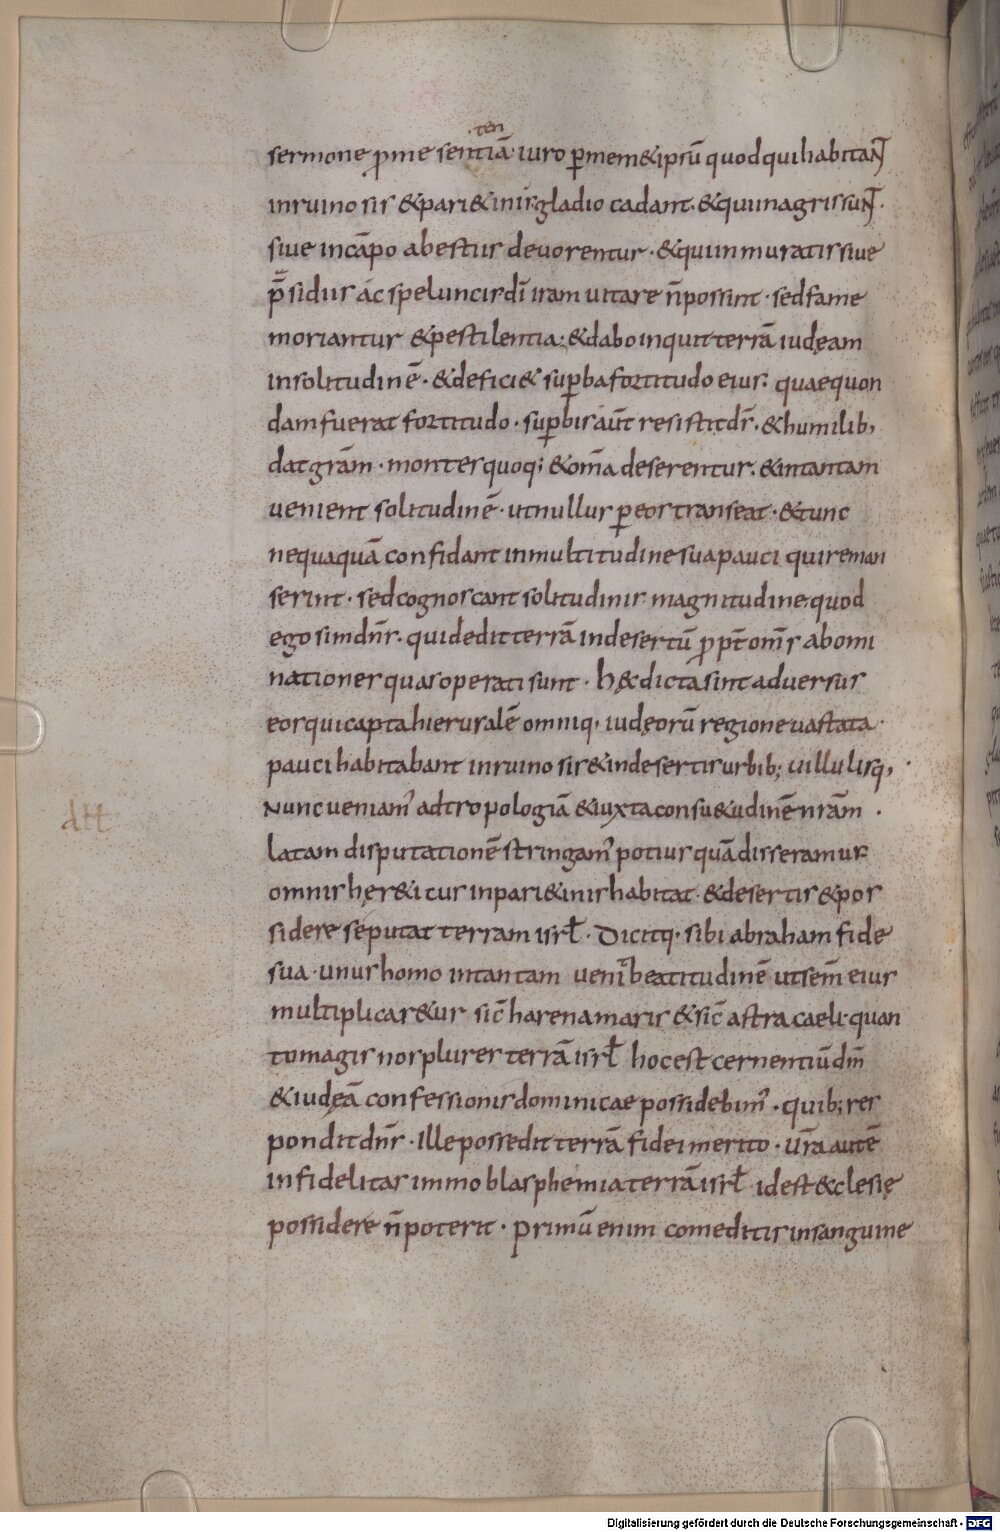 ten
sermone ꝓme sentiā· iuro ꝑmem&ipsū quod qui habitaNT
inruinosis &pari&inis gladio cadant· &qui inagris suNT·
sive incāpo abestiis devorentur· &qui inmuratis sive
p̄sidiis ac speluncis dī iram vitare n̄possint· sed fame
moriantur &pestilentia· &dabo inquit terrā iudęam
insolitudinē· &defici& suꝑba fortitudo eius· quae quon
dam fuerat fortitudo· suꝑbis aūt resistit dr̄· &humilib;
dat grām· montes quoq; &om̄a deserentur· &intantam
venient solitudinē· ut nullus ꝑeos transeat· &tunc
nequaquā confidant inmultitudine sua pauci qui reman
serint· sed cognoscant solitudinis magnitudine· quod
ego sim dn̄s· qui dedit terrā indesertū ꝓpt̄ om̄s abomi
nationes quas operati sunt· hęc dicta sint adversus
eos qui capta hierusalē omniq; iudęorū regione vastata·
pauci habitabant inruinosis &indesertis urbib; villulisq;·
Nunc veniam' adtropologiā &iuxta consu&udinē nr̄am·
latam disputationē stringam' potius quā disseramus
omnis hęr&icus inpari&inis habitat &desertis &pos
sidere se putat terram isrł· Dicitq· sibi abraham fide
sua· unus homo intantam venit beatitudinē ut sem̄ eius
multiplicar&ur sic̄ harena maris &sic̄ astra caeli· quan
to magis nos plures terrā isrł hoc est cernentiū dm̄
&iudęā confessionis dominicae possidebim'· quib; res
pondit dn̄s· Ille possedit terrā fidei merito· vr̄a autē
infidelitas immo blasphemia terrā isrł id est &clesię
possidere n̄poterit· primū enim comeditis insanguine
Digitalisierung gefördert durch die Deutsche Forschungsgemeinschaft - DFG